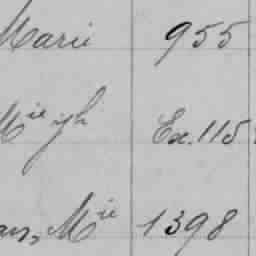 Marie 955
Mie Ex. 115
Mie 1398